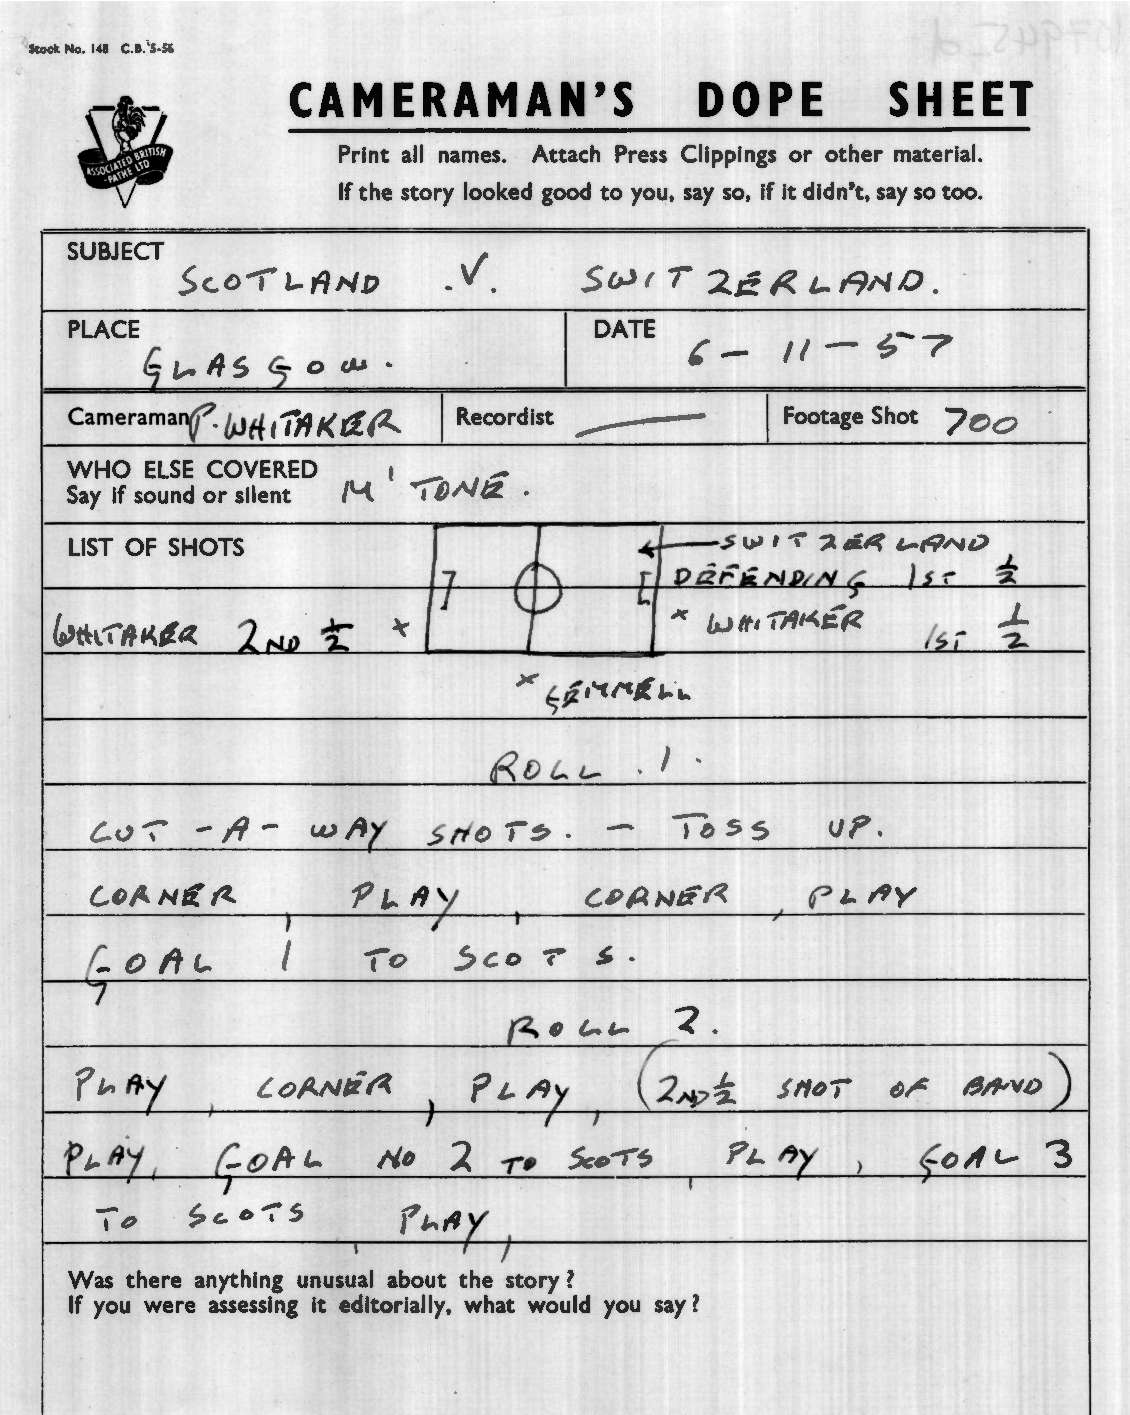 Stock No. 148 C.B. 5-56
CAMERAMAN'S DOPE SHEET
ASSOCIATED BRITISH
-PATHE LTD
Print all names. Attach Press Clippings or other material.
If the story looked good to you, say so, if it didn't, say so too.
SUBJECT
SCOTLAND .V. SWITZERLAND.
PLACE
GLASGOW.
DATE
6 - 11 - 57
Cameraman P. WHITAKER
Recordist —
Footage Shot 700
WHO ELSE COVERED
Say if sound or silent M' TONE.
LIST OF SHOTS
SWITZERLAND
DEFENDING 1ST ½
WHITAKER 2ND ½ x
x WHITAKER 1ST ½
x GEMMELL
ROLL .1.
CUT-A-WAY SHOTS. - TOSS UP.
CORNER, PLAY, CORNER, PLAY
GOAL 1 TO SCOTS.
ROLL 2.
PLAY, CORNER, PLAY, (2ND ½ SHOT OF BAND)
PLAY, GOAL NO 2 TO SCOTS, PLAY, GOAL 3
TO SCOTS, PLAY,
Was there anything unusual about the story?
If you were assessing it editorially, what would you say?